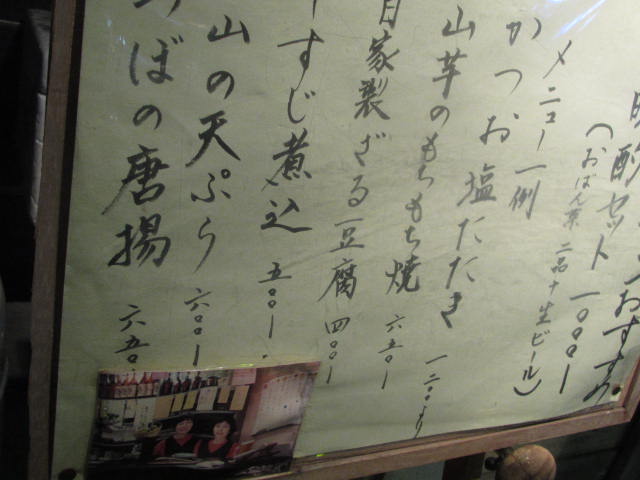 おすすめ
酌セット 一〇〇〇ー
(おばん菜 二品+生ビール)
メニュー一例
かつお塩たたき 一二〇より
山芋のもちもち焼 六五〇ー
自家製ざる豆腐 四〇〇ー
すじ煮込 五〇〇ー.
山の天ぷら 六〇〇ー
ばの唐揚 六五〇.